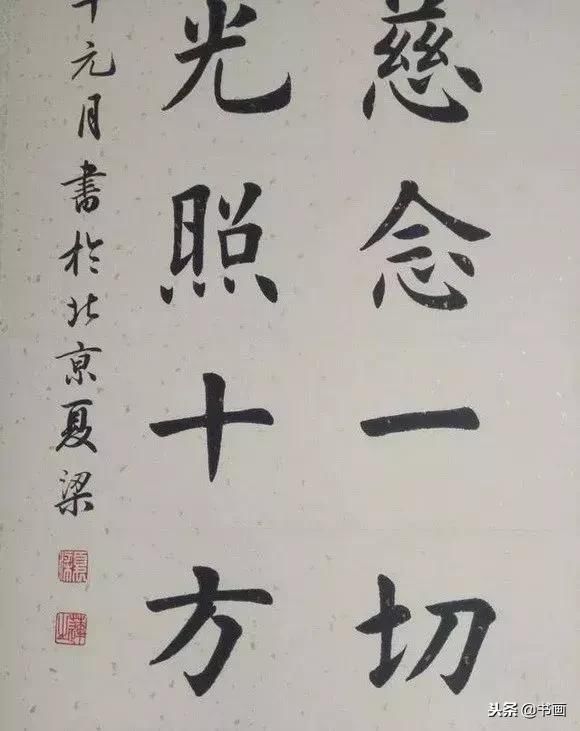 慈念一切
光照十方
元月书於北京夏梁
头条@书画